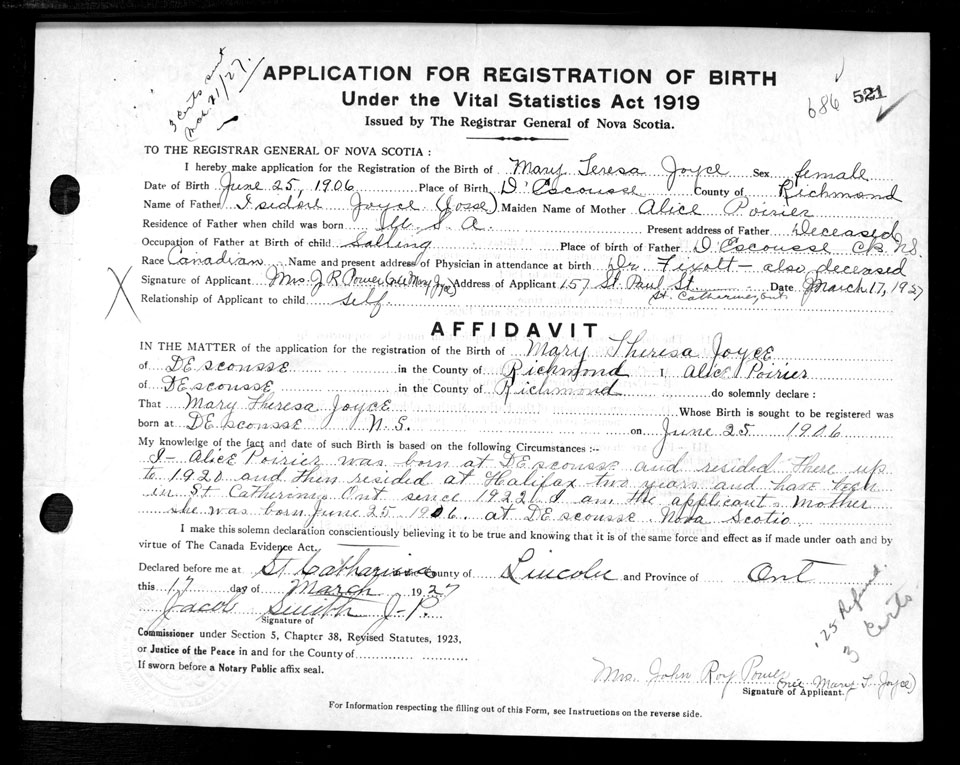 3 certs sent
Mar. 21/27.
APPLICATION FOR REGISTRATION OF BIRTH
686 521
Under the Vital Statistics Act 1919
Issued by The Registrar General of Nova Scotia.
TO THE REGISTRAR GENERAL OF NOVA SCOTIA :
I hereby make application for the Registration of the Birth of Mary Teresa Joyce Sex female
Date of Birth June 25, 1906 Place of Birth D'Escousse County of Richmond
Name of Father Isidore Joyce (Josse) Maiden Name of Mother Alice Poirier
Residence of Father when child was born U. S. A. Present address of Father Deceased
Occupation of Father at Birth of child Sailing Place of birth of Father D'Escousse CB NS.
Race Canadian Name and present address of Physician in attendance at birth Dr. - also deceased
X Signature of Applicant Mrs. J R Power (nee Mary Joyce) Address of Applicant 157 St. Paul St. Date March 17, 1927
St. Catherines, Ont.
Relationship of Applicant to child self
AFFIDAVIT
IN THE MATTER of the application for the registration of the Birth of Mary Theresa Joyce
of DEscousse in the County of Richmond I, Alice Poirier
of DEscousse in the County of Richmond do solemnly declare :
That Mary Theresa Joyce Whose Birth is sought to be registered was
born at DEscousse N.S. on June 25 1906
My knowledge of the fact and date of such Birth is based on the following Circumstances :-
I - Alice Poirier was born at DEscousse and resided there up
to 1920 and then resided at Halifax two years and have been
in St Catherines Ont since 1922 I am the applicants Mother
she was born June 25 1906. at DEscousse Nova Scotio
I make this solemn declaration conscientiously believing it to be true and knowing that it is of the same force and effect as if made under oath and by
virtue of The Canada Evidence Act.
Declared before me at St Catharines County of Lincoln and Province of Ont
this 17 day of March 1927
Jacob Smith J-P.
Signature of
Commissioner under Section 5, Chapter 38, Revised Statutes, 1923,
or Justice of the Peace in and for the County of
If sworn before a Notary Public affix seal.
.25 Refund.
3 Certs
Mrs. John Roy Power (nee Mary T. Joyce)
Signature of Applicant.
For Information respecting the filling out of this Form, see Instructions on the reverse side.